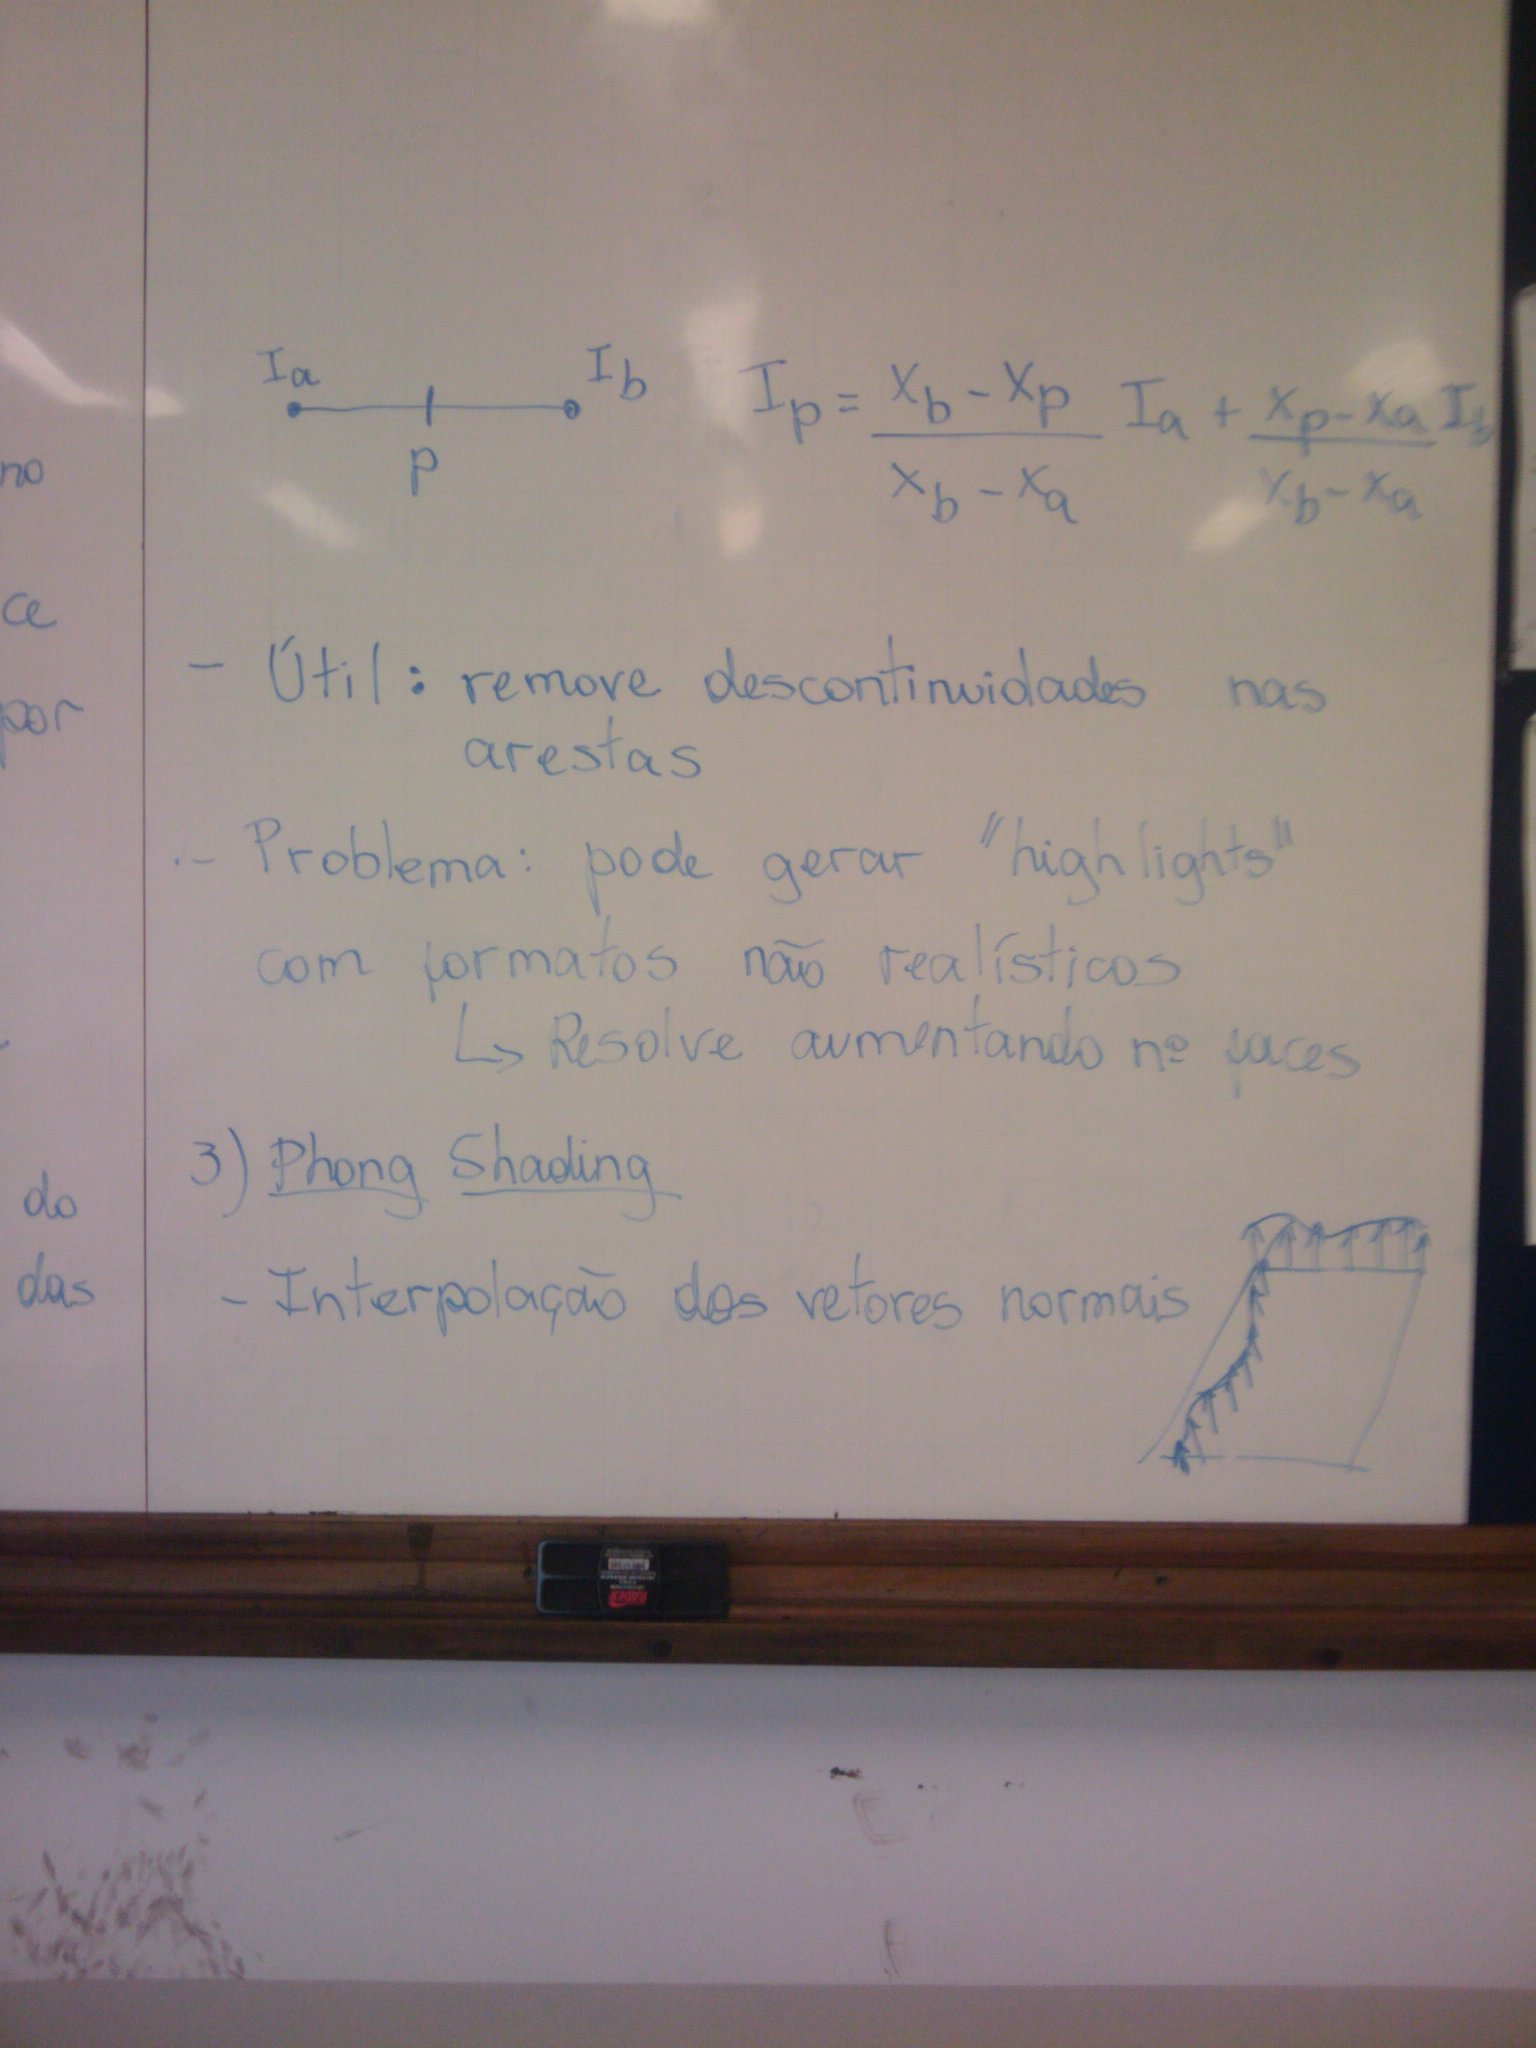 no
ce
por
do
das
Ia Ib
P
Ip = xb - xp / xb - xa Ia + xp - xa / xb - xa Ib
- Útil: remove descontinuidades nas
arestas
- Problema: pode gerar "highlights"
com formatos não realísticos
↳ Resolve aumentando nº faces
3) Phong Shading
- Interpolação dos vetores normais